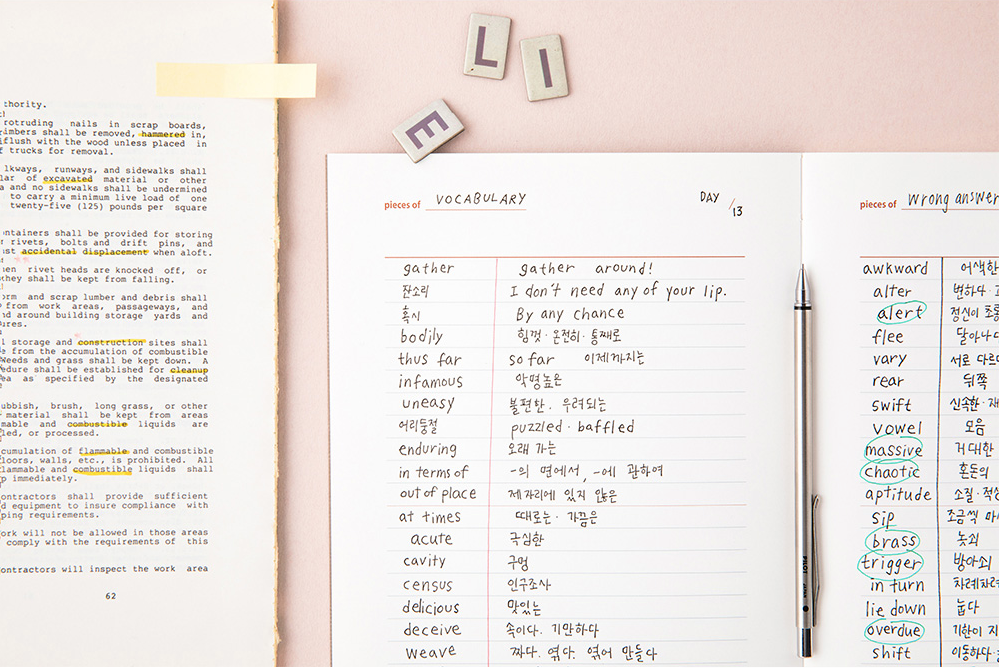 thority.
rotruding nails in scrap boards,
imbers shall be removed, hammered in,
flush with the wood unless placed in
f trucks for removal.
lkways, runways, and sidewalks shall
lar of excavated material or other
a and no sidewalks shall be undermined
to carry a minimum live load of one
twenty-five (125) pounds per square
ontainers shall be provided for storing
rivets, bolts and drift pins, and
st accidental displacement when aloft.
en rivet heads are knocked off, or
they shall be kept from falling.
orm and scrap lumber and debris shall
from work areas, passageways, and
nd around building storage yards and
ures.
l storage and construction sites shall
e from the accumulation of combustible
Weeds and grass shall be kept down. A
edure shall be established for cleanup
ea as specified by the designated
ubbish, brush, long grass, or other
material shall be kept from areas
mable and combustible liquids are
led, or processed.
cumulation of flammable and combustible
loors, walls, etc., is prohibited. All
lammable and combustible liquids shall
p immediately.
ontractors shall provide sufficient
d equipment to insure compliance with
ping requirements.
ork will not be allowed in those areas
comply with the requirements of this
ontractors will inspect the work area
62
L
I
E
pieces of VOCABULARY
DAY /13
gather gather around!
잔소리 I don't need any of your lip.
혹시 By any chance
bodily 힘껏·온전히·통째로
thus far so far 이제까지는
infamous 악명높은
uneasy 불편한. 우려되는
어리둥절 puzzled · baffled
enduring 오래 가는
in terms of -의 면에서, -에 관하여
out of place 제자리에 있지 않은
at times 때로는·가끔은
acute 극심한
cavity 구멍
census 인구조사
delicious 맛있는
deceive 속이다. 기만하다
weave 짜다. 엮다. 엮어 만들다
PILOT
pieces of wrong answer
awkward 어색한
alter 변하다·고
alert 정신이 초롱
flee 달아나다
vary 서로 다르다
rear 뒤쪽
swift 신속한·재
vowel 모음
massive 거대한
chaotic 혼돈의
aptitude 소질·적성
sip 조금씩 마시
brass 놋쇠
trigger 방아쇠
in turn 차례차례
lie down 눕다
overdue 기한이 지
shift 이동하다·